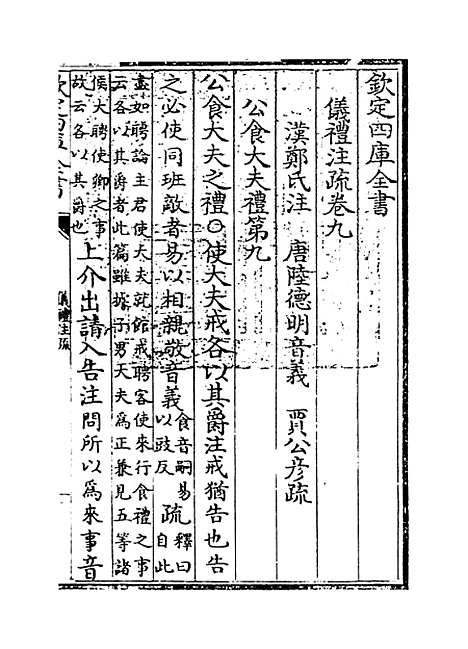 欽定四庫全書
儀禮注疏卷九
漢鄭氏注 唐陸德明音義 賈公彦疏
公食大夫禮第九
公食大夫之禮〇使大夫戒各以其爵注戒猶告也告
之必使同班敵者易以相親敬音義食音嗣易以豉反疏釋曰自此
盡如聘論主君使大夫就館戒聘客使來行食禮之事
云各以其爵者此篇雖據子男大夫為正兼見五等諸
侯大聘使卿之事故云各以其爵也上介出請入告注問所以為來事音
儀禮注疏